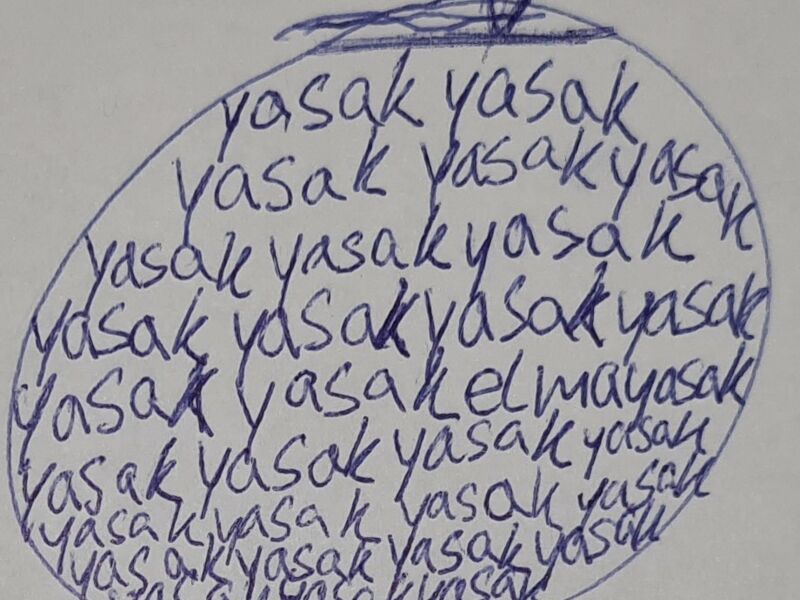 yasak yasak
yasak yasak yasak
yasak yasak yasak
yasak yasak yasak yasak
yasak yasak elma yasak
yasak yasak yasak yasak
yasak yasak yasak yasak
yasak yasak yasak yasak
yasak yasak yasak